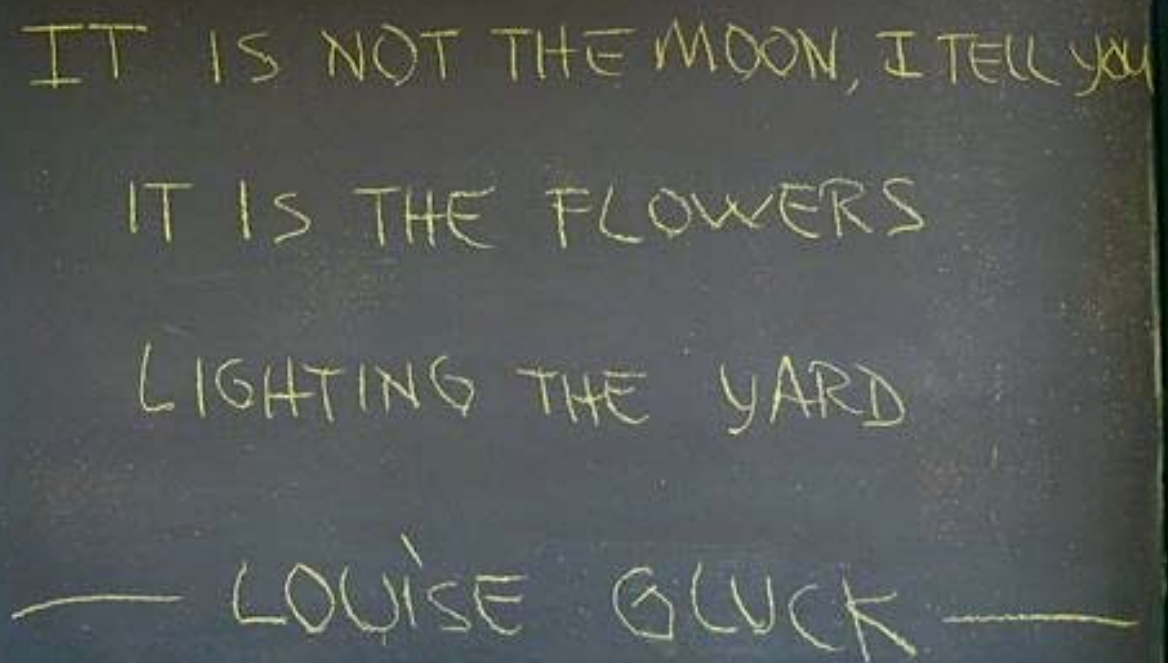 IT IS NOT THE MOON, I TELL YOU
IT IS THE FLOWERS
LIGHTING THE YARD
— LOUÌSE GLUCK —